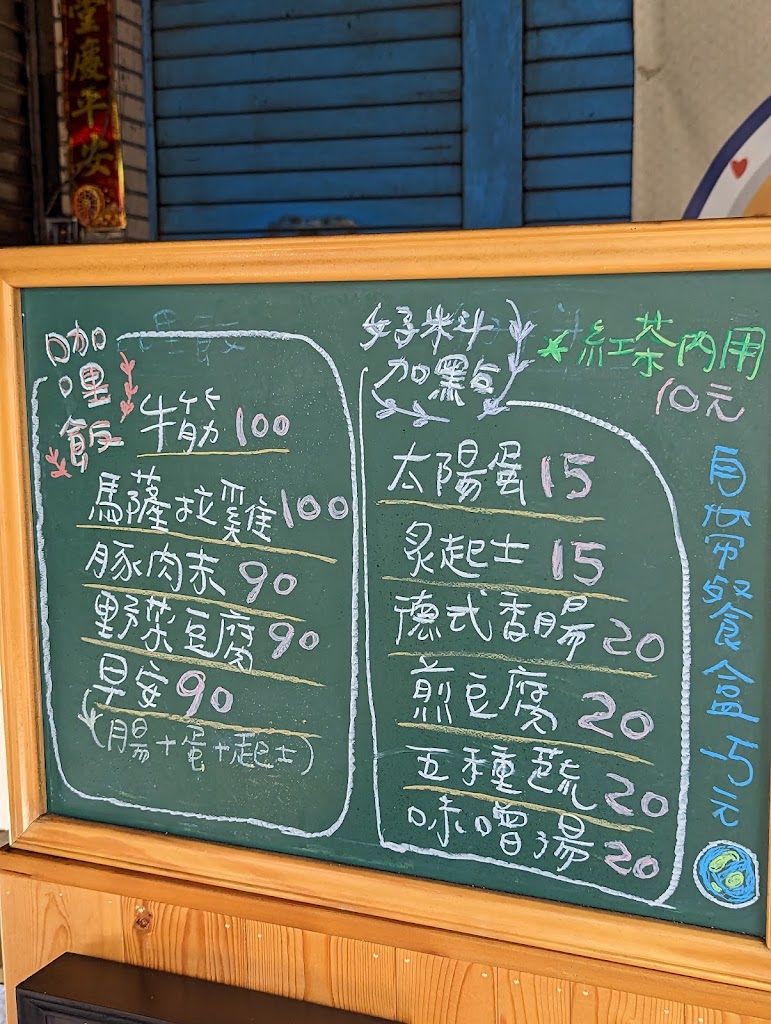 堂慶平安
咖哩飯
牛筋 100
馬薩拉雞 100
豚肉末 90
野菜豆腐 90
早安 90
(腸+蛋+起士)
好料加點
太陽蛋 15
炙起士 15
德式香腸 20
煎豆腐 20
五種蔬 20
味噌湯 20
紅茶內用
10元
自備餐盒